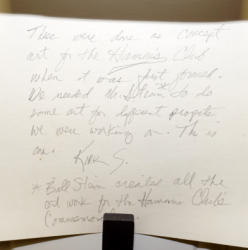 These were done as concept
art for the Hamm's Club
when it was first formed.
We needed Mr. Stein* to do
some art for different projects
we were working on. This is
one.
Kirk S.
* Bill Stein creates all the
art work for the Hamm's Club's
Commemorative